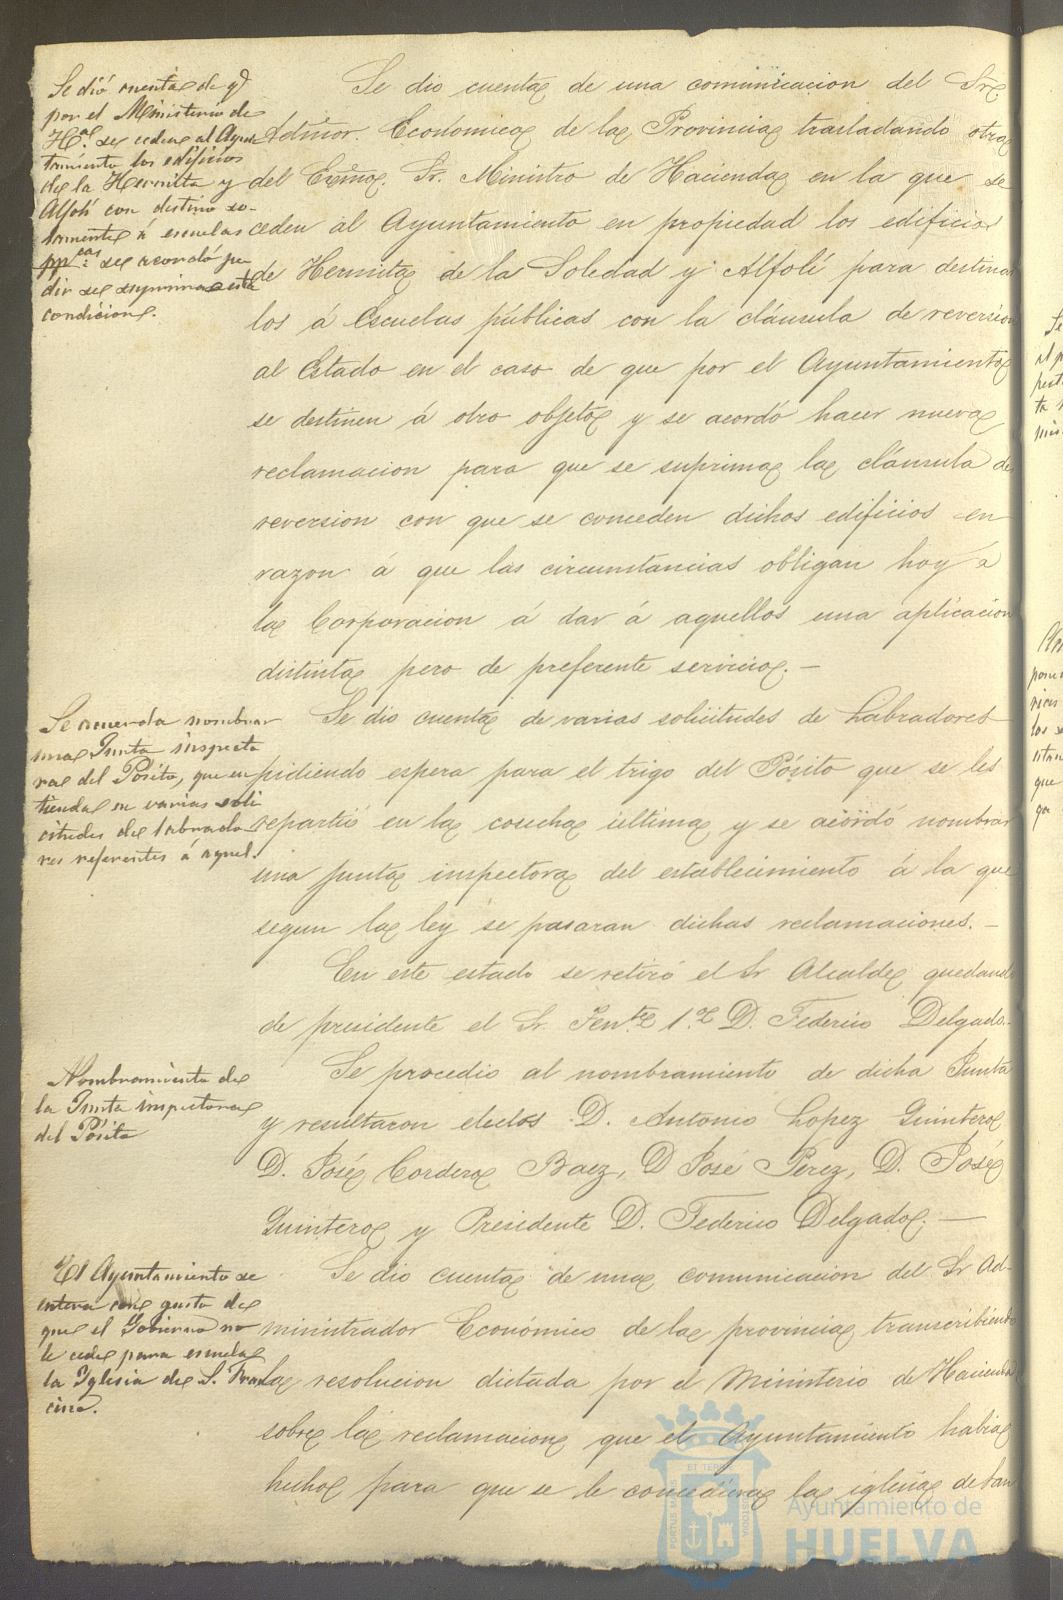 Se dió cuenta de qe
por el Ministerio de
Hda se ceden al Ayun
tamiento los edificios
de la Hermita y
Alfolí con destino so-
lamente á escuelas
ppcas: se acordó pe
dir se suprima esta
condicion.
Se dio cuenta de una comunicacion del Sr.
Admor. Economico de la Provincia trasladando otra
del Excmo. Sr. Ministro de Hacienda en la que se
ceden al Ayuntamiento en propiedad los edificios
de Hermita de la Soledad y Alfolí para destinar
los á Escuelas públicas con la cláusula de reversion
al Estado en el caso de que por el Ayuntamiento
se destinen á otro objeto y se acordó hacer nueva
reclamacion para que se suprima la cláusula de
reversion con que se conceden dichos edificios en
razon á que las circunstancias obligan hoy á
la Corporacion á dar á aquellos una aplicacion
distinta pero de preferente servicio. —
Se acuerda nombrar
una Junta inspecto
ra del Pósito, que en
tienda en varias soli
citudes de labrado
res referentes á aquel.
Se dio cuenta de varias solicitudes de Labradores
pidiendo espera para el trigo del Pósito que se les
repartió en la cosecha última y se acordó nombrar
una junta inspectora del establecimiento á la que
segun la ley se pasaran dichas reclamaciones. —
En este estado se retiró el Sr Alcalde quedando
de presidente el Sr. Tente 1.º D. Federico Delgado.
Nombramiento de
la Junta inspectora
del Pósito
Se procedio al nombramiento de dicha Junta
y resultaron electos D. Antonio Lopez Quintero
D. José Cordero Baez, D José Pérez, D. José
Quintero y Presidente D. Federico Delgado. —
El Ayuntamiento se
entera con gusto de
que el Gobierno no
le cede para escuelas
la Iglesia de S. Fran
cisco.
Se dio cuenta de una comunicacion del Sr Ad-
ministrador Económico de la provincia transcribiendo
la resolucion dictada por el Ministerio de Hacienda
sobre la reclamacion que el Ayuntamiento habia
hecho para que se le concediera la iglesia de San
PORTUS MARIS
ET TERRAE
CUSTODIA
Ayuntamiento de
HUELVA